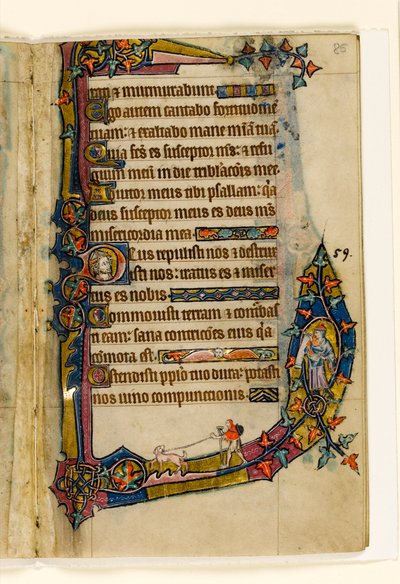 85
rati & murmurabunt.
Ego autem cantabo fortitudinē
tuam: & exaltabo mane mīam tuā
Quia fc̄s es susceptor m̄s: & refu
gium meū in die tribl̄acōis mee
Adiutor meus tibi psallam: q̄a
deus susceptor meus es deus m̄s
misericordia mea.
Deus repulisti nos & destrux
isti nos: iratus es & miser
tus es nobis.
59.
Commouisti terram & cōtbas
ti eam: sana contricōes eius q̄a
cōmota est.
Ostendisti pp̄lo tuo dura: potasti
nos uino compunctionis.